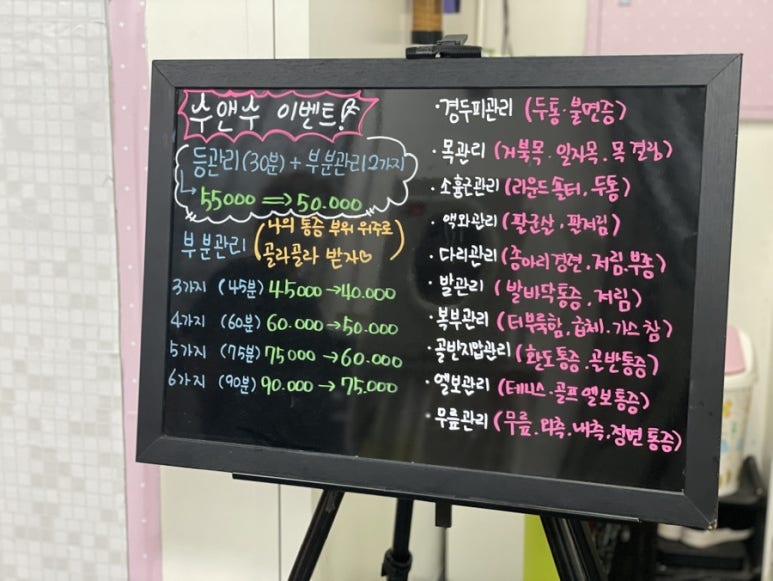 수앤수 이벤트!
등관리(30분) + 부분관리 2가지
55000 ⇒ 50.000
부분관리 (나의 통증 부위 위주로 골라골라 받자♡)
3가지 (45분) 45000 → 40.000
4가지 (60분) 60.000 → 50.000
5가지 (75분) 75000 → 60.000
6가지 (90분) 90.000 → 75.000
·경두피관리 (두통·불면증)
·목관리 (거북목·일자목·목 결림)
·소흉근관리 (라운드숄더, 두통)
·액와관리 (팔군살·팔저림)
·다리관리 (종아리경련·저림,부종)
·발관리 (발바닥통증·저림)
·복부관리 (더부룩함, 급체·가스 참)
·골반지압관리 (환도통증·골반통증)
·엘보관리 (테니스·골프엘보통증)
·무릎관리 (무릎, 외측, 내측, 정면 통증)